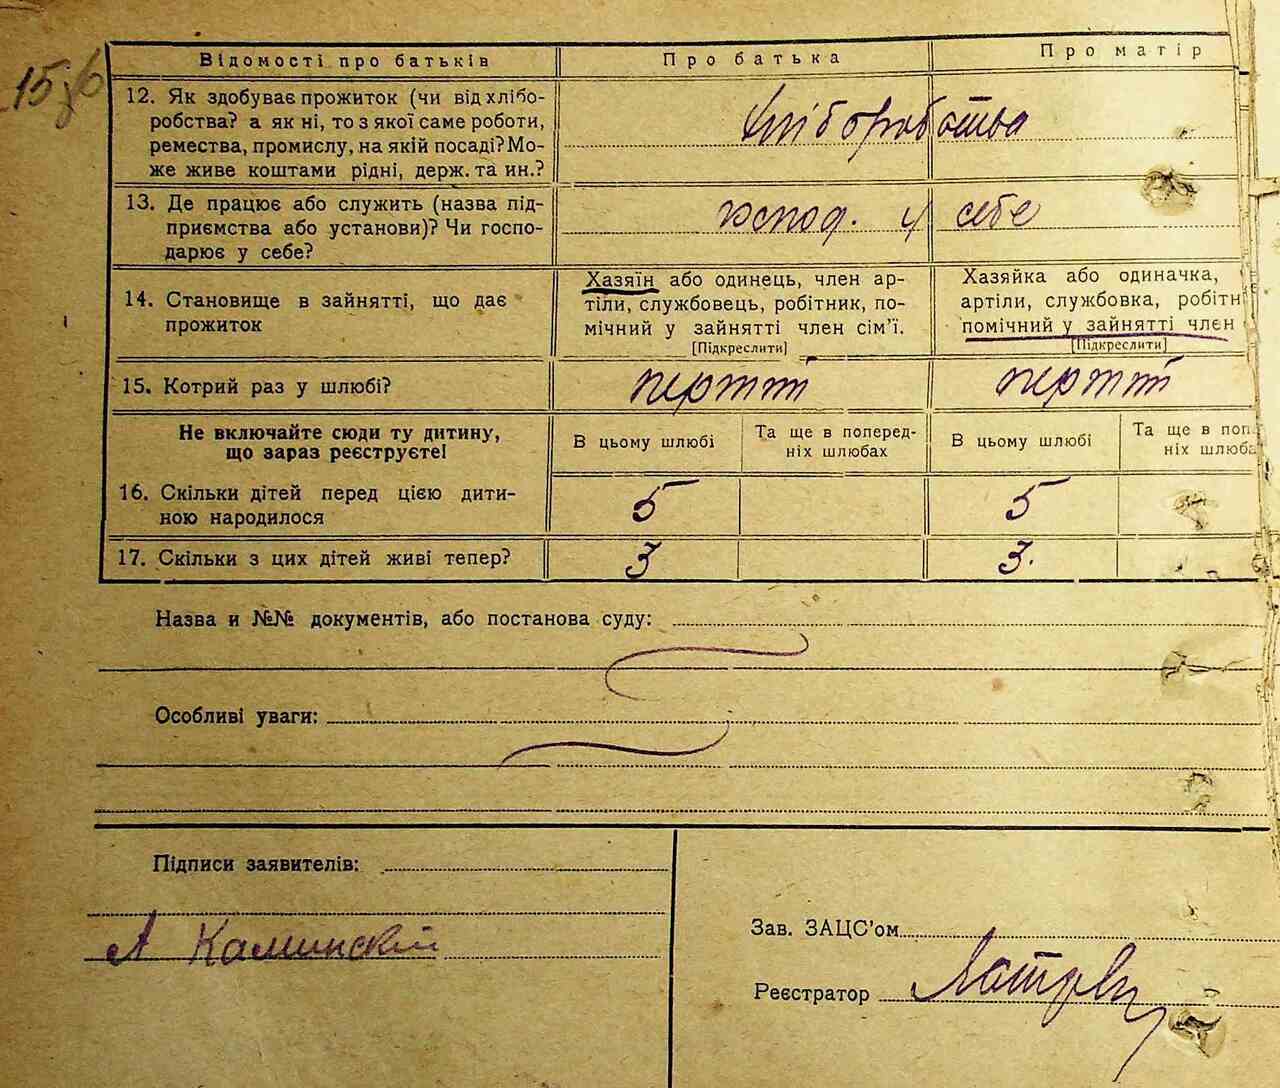 15зб
Відомості про батьків Про батька Про матір
12. Як здобуває прожиток (чи від хлібо-
робства? а як ні, то з якої саме роботи,
ремества, промислу, на якій посаді? Мо-
же живе коштами рідні, держ. та ин.?
хліборобства
13. Де працює або служить (назва під-
приємства або установи)? Чи госпо-
дарює у себе?
господ. у себе
14. Становище в зайнятті, що дає
прожиток
Хазяїн або одинець, член ар-
тіли, службовець, робітник, по-
мічний у зайнятті член сім'ї.
[Підкреслити]
Хазяйка або одиначка,
артіли, службовка, робітн
помічний у зайнятті член
[Підкреслити]
15. Котрий раз у шлюбі? перший перший
Не включайте сюди ту дитину,
що зараз реєструєте!
В цьому шлюбі
Та ще в поперед-
ніх шлюбах
В цьому шлюбі
Та ще в поп
ніх шлюба
16. Скільки дітей перед цією дити-
ною народилося
5 5
17. Скільки з цих дітей живі тепер? 3 3.
Назва и №№ документів, або постанова суду:
Особливі уваги:
Підписи заявителів:
А Каминский
Зав. ЗАЦС'ом
Реєстратор